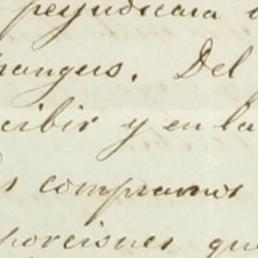 perjudicara
rangers. Del
cibir y en la
s compramos
porciones que